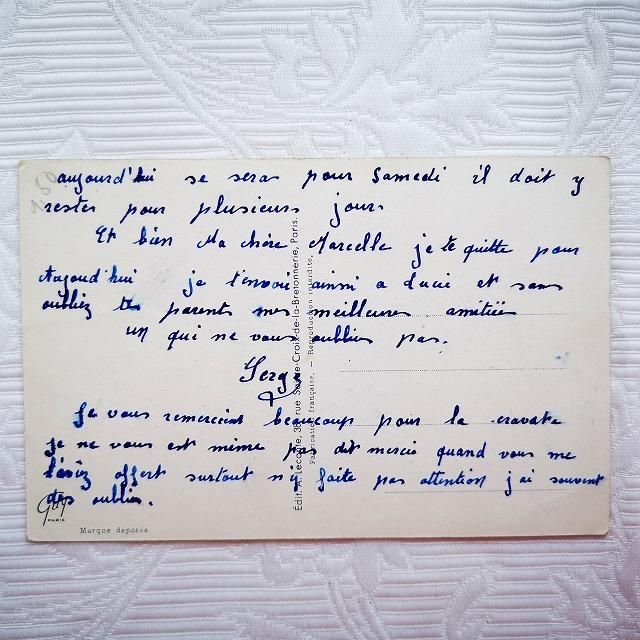 aujourd'hui se sera pour Samedi il doit y
rester pour plusieurs jours
Et bien Ma chère Marcelle je te quitte pour
Aujoud'hui je t'envoi ainsi a Lucie et sans
oubliez tes parents mes meilleures amitiés
un qui ne vous oublies pas.
Serge
Je vous remerciens beaucoup pour la cravate
je ne vous est mime pas dit merci quand vous me
l'aviez offert surtout n'y faite pas attention j'ai souvent
des oublis.
Gup
PARIS
Marque déposée
Édit. A. Lecomte, 38, rue Sainte-Croix-de-la-Bretonnerie, Paris.
Fabrication française. — Reproduction interdite.